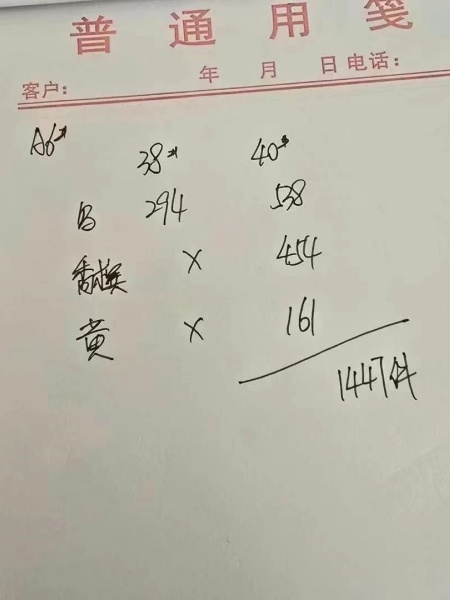 普通用笺
客户： 年 月 日 电话：
A6#
38# 40#
294 538
香槟 X 454
黄 X 161
1447件